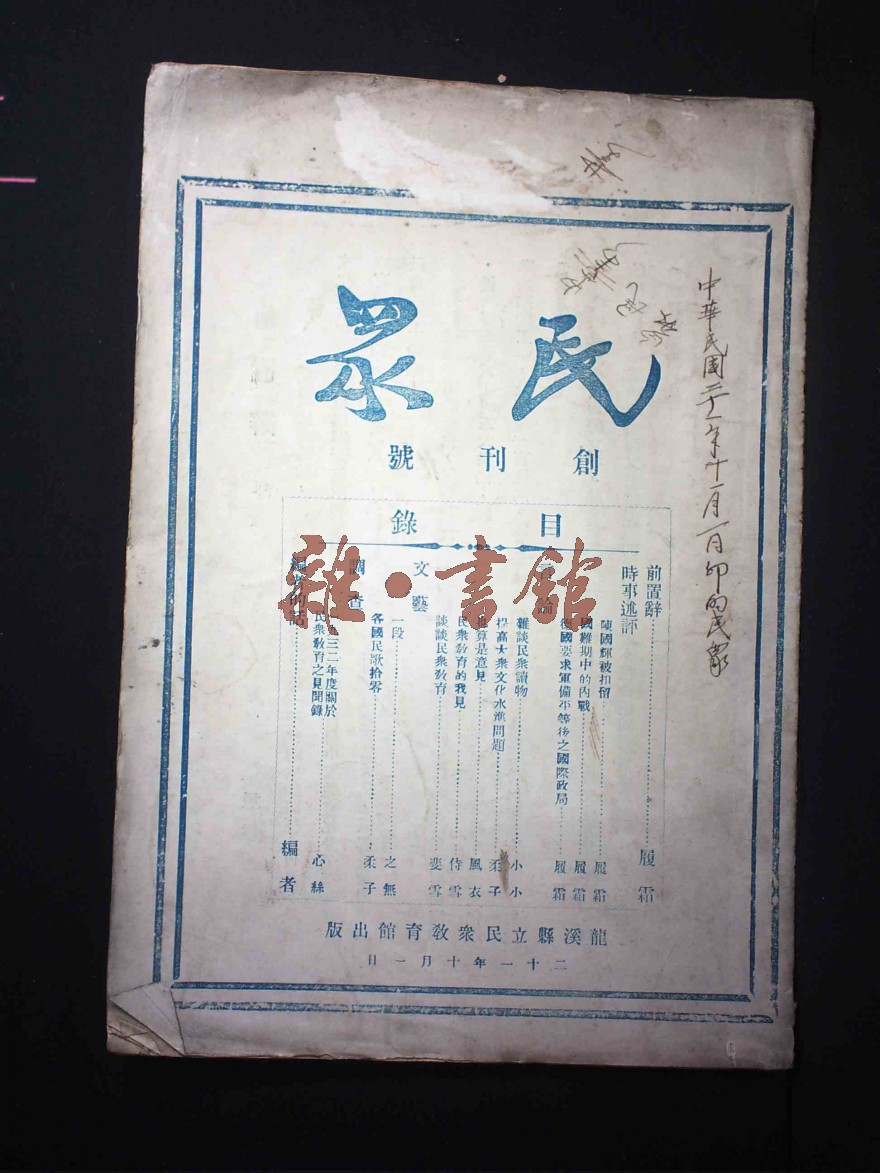 民眾
創刊號
目錄
前置辭 履霜
時事述評
陳國輝被扣留 履霜
國難期中的內戰 履霜
德國要求軍備平等後之國際政局 履霜
論
雜談民衆讀物 小小
提高大衆文化水準問題 柔子
算是意見 風衣
民衆敎育的我見 侍雪
談談民衆敎育 斐雪
文藝
一段 之無
各國民歌拾零 柔子
調查
九三二年度關於
民衆敎育之見聞錄 心絲
編者的話 編者
龍溪縣立民衆敎育館出版
二十一年十月一日
中華民國二十一年十一月一日印的民眾
雜·書館